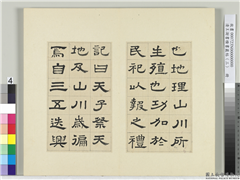 也地理山川所
生殖也功加於
民祀以報之禮
記曰天子祭天
地及山川歲徧
焉自三五迭興
4